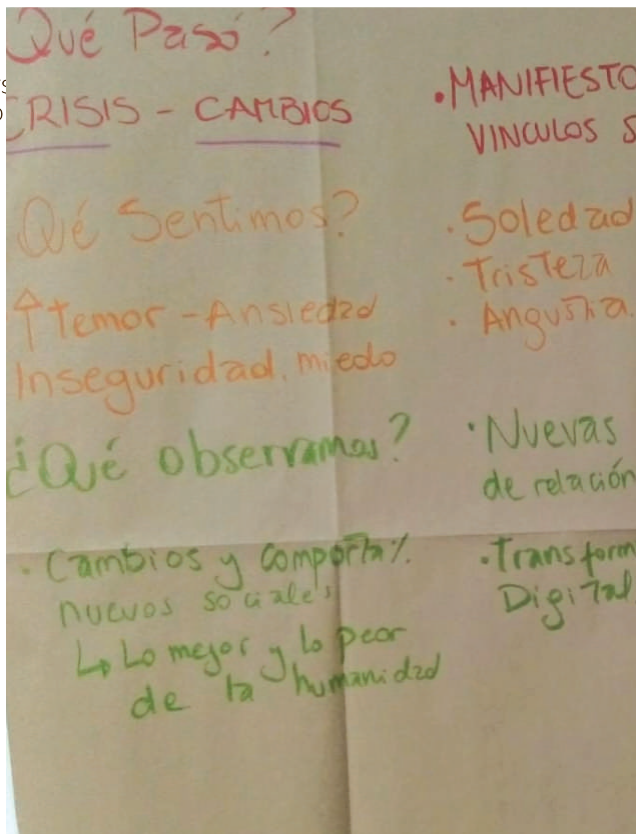 Qué Pasó?
CRISIS - CAMBIOS
Qué Sentimos?
↑ temor - Ansiedad
Inseguridad, miedo
¿Qué observamos?
· Cambios y comporta/.
nuevos sociales
↳ Lo mejor y lo peor
de la humanidad
· MANIFIESTO
VINCULOS S
· Soledad
· Tristeza
· Angustia.
· Nuevas
de relación
· Transform
Digital